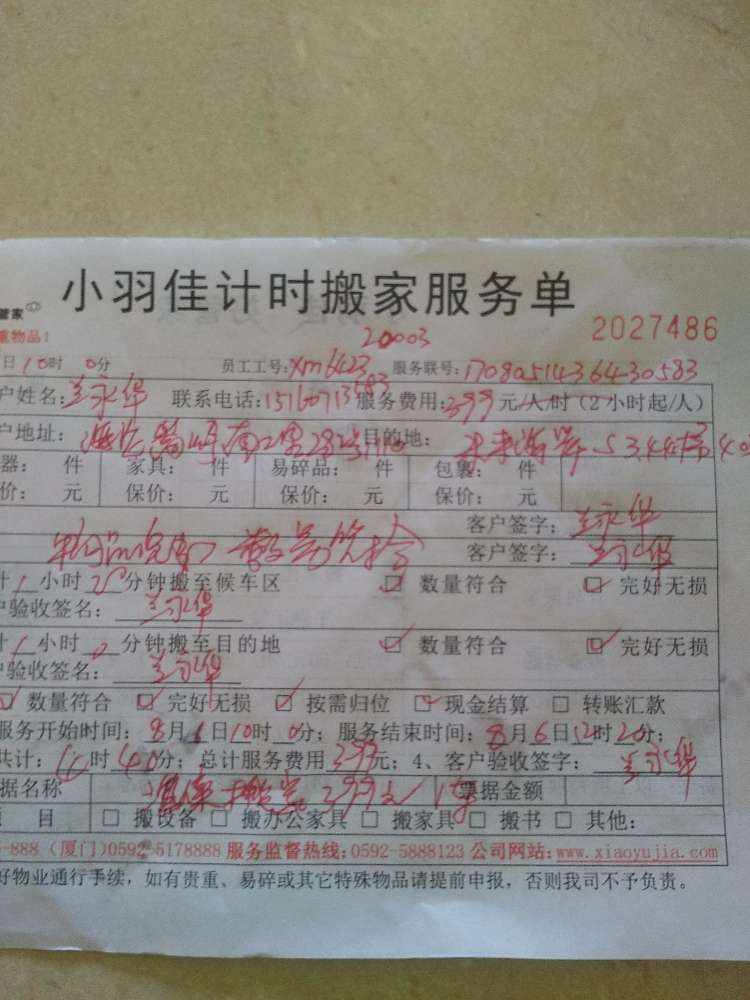 小羽佳计时搬家服务单
管家
重物品！
20003
2027486
日10时0分 员工工号：xm6423 服务联号：1708051436430583
户姓名：兰永华 联系电话：15160713583 服务费用：399元/人/时（2小时起/人）
户地址： 目的地：
器： 件 家具： 件 易碎品： 件 包裹： 件
价： 元 保价： 元 保价： 元 保价： 元
客户签字：兰永华
客户签字：兰永华
计1小时20分钟搬至候车区 ☑ 数量符合 ☑ 完好无损
户验收签名：兰永华
计1小时0分钟搬至目的地 ☑ 数量符合 ☑ 完好无损
户验收签名：兰永华
☑ 数量符合 ☑ 完好无损 ☑ 按需归位 ☑ 现金结算 □ 转账汇款
服务开始时间：8月6日10时0分；服务结束时间：8月6日12时20分；
共计：时40分；总计服务费用399元；4、客户验收签字：兰永华
据名称 搬家399元 票据金额
项 目 □ 搬设备 □ 搬办公家具 □ 搬家具 □ 搬书 □ 其他：
-888（厦门）0592-5178888 服务监督热线：0592-5888123 公司网站：www.xiaoyujia.com
好物业通行手续，如有贵重、易碎或其它特殊物品请提前申报，否则我司不予负责。